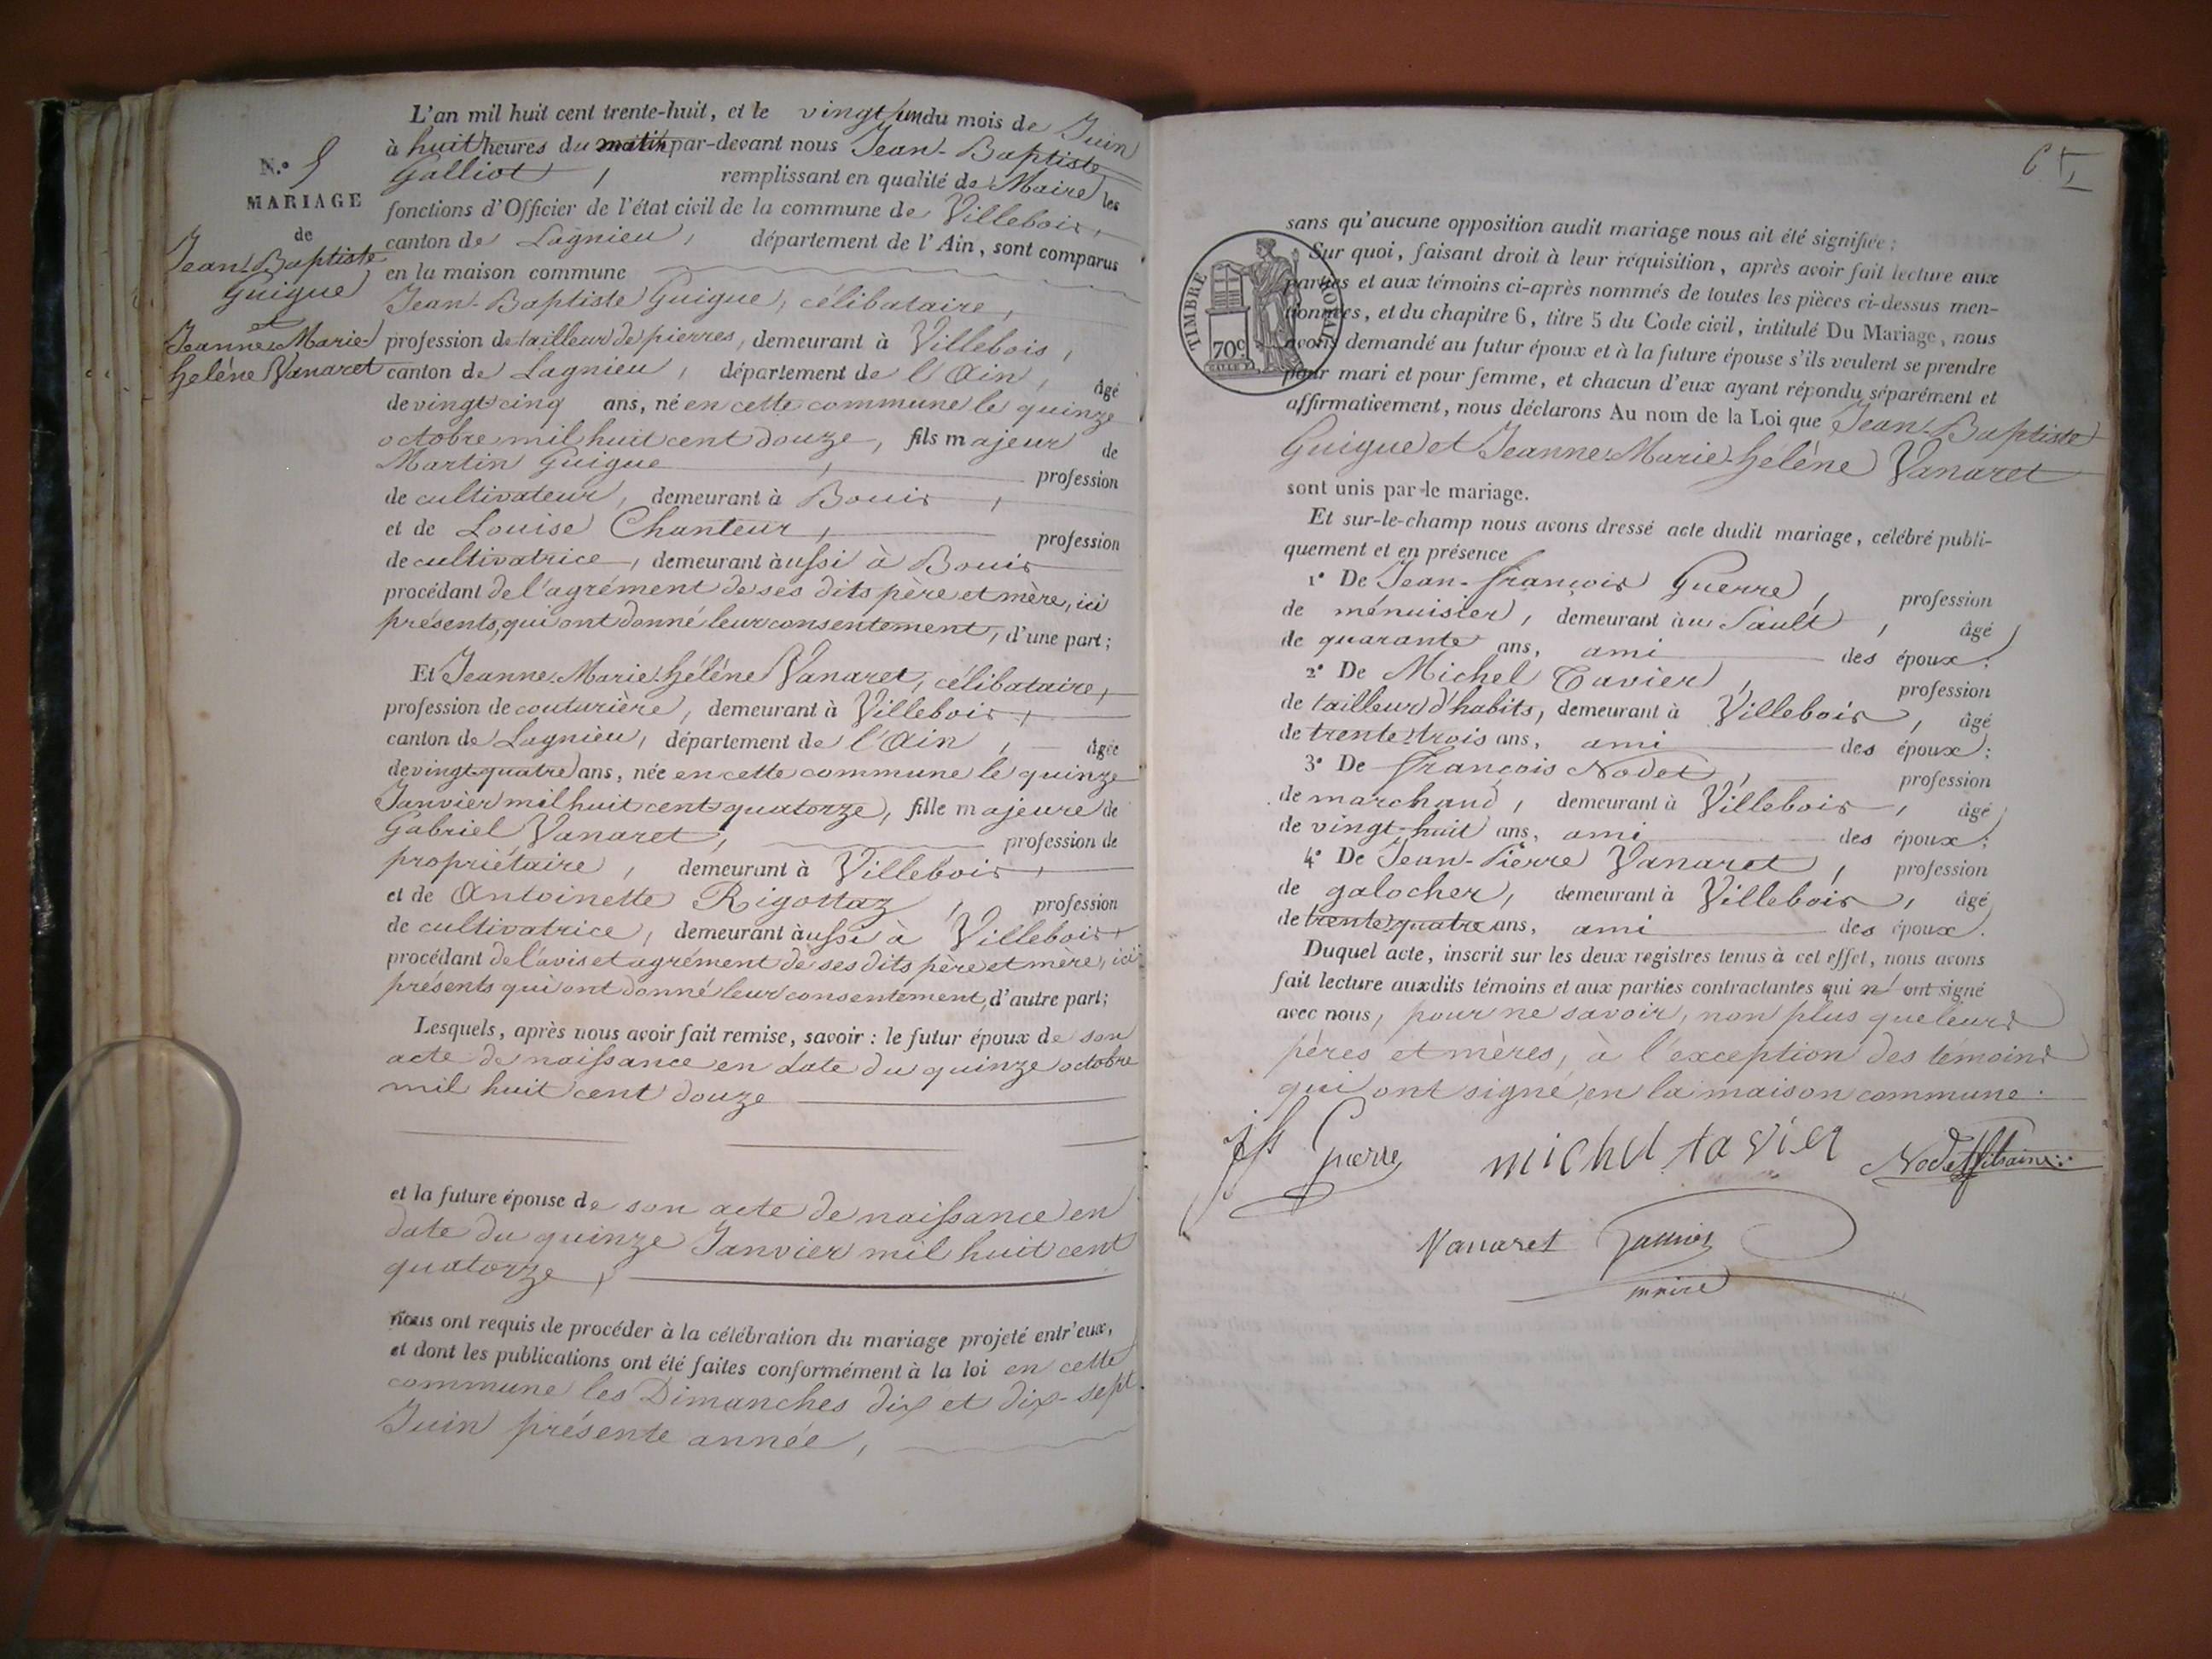 L'an mil huit cent trente-huit, et le vingt un du mois de Juin
à huit heures du matin par-devant nous Jean-Baptiste
Galliot, remplissant en qualité de Maire les
fonctions d'Officier de l'état civil de la commune de Villebois,
canton de Lagnieu, département de l'Ain, sont comparus
en la maison commune
N.º 5
MARIAGE
de
Jean-Baptiste
Guigue
et
Jeanne-Marie
héléne Vanaret
Jean-Baptiste Guigue, célibataire,
profession de tailleur de pierres, demeurant à Villebois,
canton de Lagnieu, département de l'Ain, âgé
de vingt cinq ans, né en cette commune le quinze
octobre mil huit cent douze, fils majeur de
Martin Guigue, profession
de cultivateur, demeurant à Bouis,
et de Louise Chanteur, profession
de cultivatrice, demeurant aussi à Bouis
procédant de l'agrément de ses dits père et mère, ici
présents, qui ont donné leur consentement, d'une part;
Et Jeanne-Marie-héléne Vanaret, célibataire,
profession de couturière, demeurant à Villebois,
canton de Lagnieu, département de l'Ain, âgée
de vingt-quatre ans, née en cette commune le quinze
Janvier mil huit cent quatorze, fille majeure de
Gabriel Vanaret, profession de
propriétaire, demeurant à Villebois,
et de Antoinette Rigottaz, profession
de cultivatrice, demeurant aussi à Villebois,
procédant de l'avis et agrément de ses dits père et mère, ici
présents qui ont donné leur consentement, d'autre part;
Lesquels, après nous avoir fait remise, savoir : le futur époux de son
acte de naissance en date du quinze octobre
mil huit cent douze
et la future épouse de son acte de naissance en
date du quinze Janvier mil huit cent
quatorze,
nous ont requis de procéder à la célébration du mariage projeté entr'eux,
et dont les publications ont été faites conformément à la loi en cette
commune les Dimanches dix et dix-sept
Juin présente année,
TIMBRE ROYAL
70c
sans qu'aucune opposition audit mariage nous ait été signifiée;
Sur quoi, faisant droit à leur réquisition, après avoir fait lecture aux
parties et aux témoins ci-après nommés de toutes les pièces ci-dessus men-
tionnées, et du chapitre 6, titre 5 du Code civil, intitulé Du Mariage, nous
avons demandé au futur époux et à la future épouse s'ils veulent se prendre
pour mari et pour femme, et chacun d'eux ayant répondu séparément et
affirmativement, nous déclarons Au nom de la Loi que Jean-Baptiste
Guigue et Jeanne-Marie-héléne Vanaret
sont unis par le mariage.
Et sur-le-champ nous avons dressé acte dudit mariage, célébré publi-
quement et en présence
1º De Jean-françois Guerre, profession
de ménuisier, demeurant au Sault, âgé
de quarante ans, ami des époux;
2º De Michel Tavier, profession
de tailleur d'habits, demeurant à Villebois, âgé
de trente-trois ans, ami des époux;
3º De françois Nodet, profession
de marchand, demeurant à Villebois, âgé
de vingt-huit ans, ami des époux;
4º De Jean-Pierre Vanaret, profession
de galocher, demeurant à Villebois, âgé
de trente quatre ans, ami des époux.
Duquel acte, inscrit sur les deux registres tenus à cet effet, nous avons
fait lecture auxdits témoins et aux parties contractantes qui n'ont signé
avec nous, pour ne savoir, non plus que leurs
pères et mères, à l'exception des témoins
qui ont signé, en la maison commune.
Guerre michel tavier Nodet
Vanaret Galliot
maire